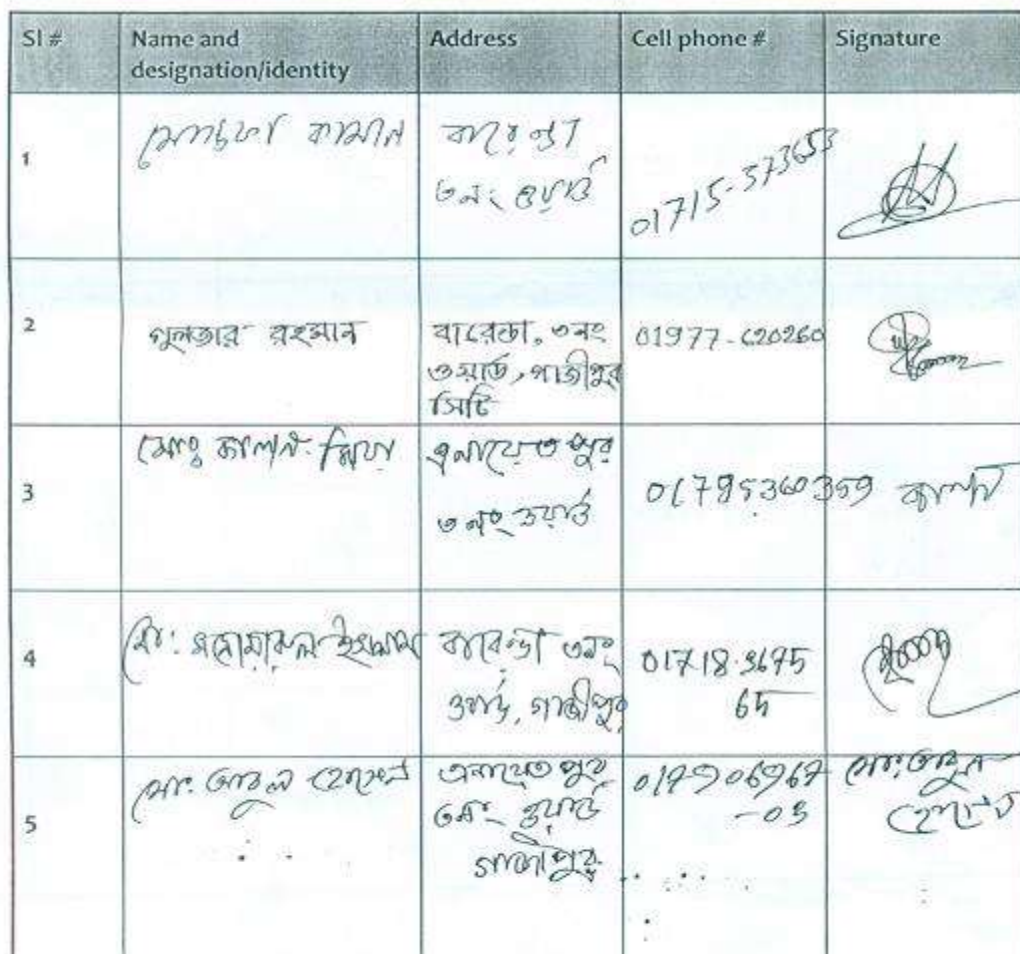 Sl # Name and designation/identity Address Cell phone # Signature
1 মোস্তফা কামাল বারেন্ডা
৩নং ওয়ার্ড 01715-373653
2 গুলজার রহমান বারেন্ডা, ৩নং
ওয়ার্ড, গাজীপুর
সিটি 01977-620260
3 মোঃ কালন মিয়া এনায়েতপুর
৩নং ওয়ার্ড 01795360359 কালন
4 মো: মনোয়ারুল ইসলাম বারেন্ডা ৩নং
ওয়ার্ড, গাজীপুর 01718-9675
65
5 মো: আবুল হোসেন এনায়েতপুর
৩নং ওয়ার্ড
গাজীপুর 017906967
-03 মো: আবুল
হোসেন